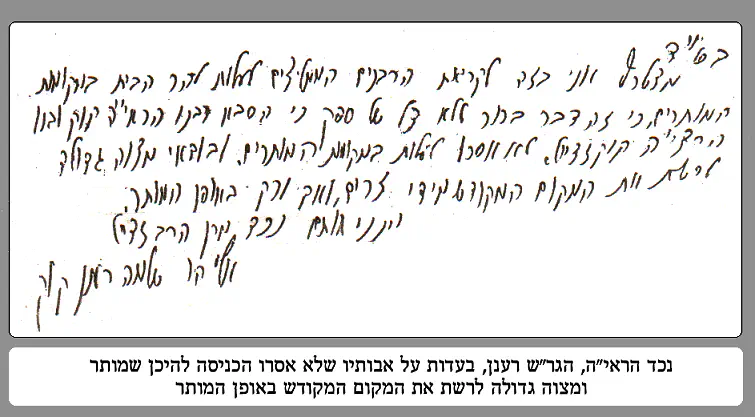 בסי״ד
מצטרף אני בזה לקריאת הרבנים הממליצים לעלות להר הבית במקומות
המותרים, כי זה דבר ברור ללא צל של ספק כי הסבא רבנו הראי״ה קוק ובנו
הרצי״ה קוק זצ״ל, לא אסרו לעלות במקומות המותרים. ובודאי מצוה גדולה
לרשת את המקום המקודש מידי זרים, ואך ורק באופן המותר.
והנני חותם נכד מרן הרב זצ״ל
שלמה רענן קוק
נכד הראי״ה, הגר״ש רענן, בעדות על אבותיו שלא אסרו הכניסה להיכן שמותר
ומצוה גדולה לרשת את המקום המקודש באופן המותר